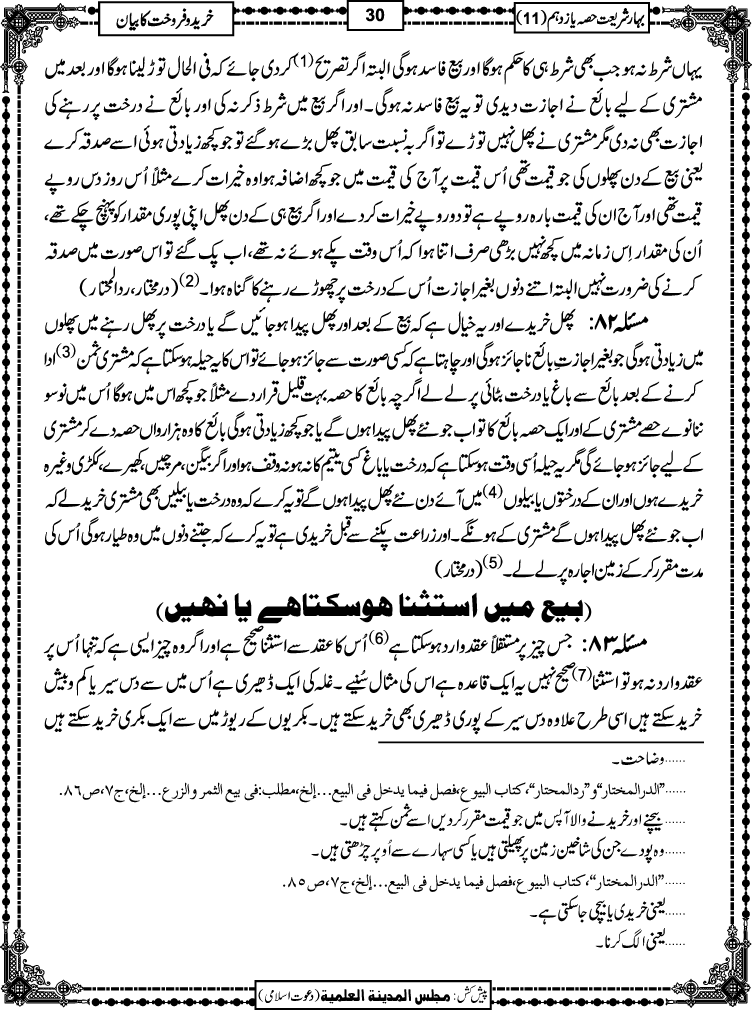 بہار شریعت حصہ یازدہم (11)
30
خرید و فروخت کا بیان
یہاں شرط نہ ہو جب بھی شرط ہی کا حکم ہوگا اور بیع فاسد ہوگی البتہ اگر تصریح (1) کر دی جائے کہ فی الحال توڑ لینا ہوگا اور بعد میں
مشتری کے لیے بائع نے اجازت دیدی تو یہ بیع فاسد نہ ہوگی۔ اور اگر بیع میں شرط ذکر نہ کی اور بائع نے درخت پر رہنے کی
اجازت بھی نہ دی مگر مشتری نے پھل نہیں توڑے تو اگر بہ نسبت سابق پھل بڑے ہوگئے تو جو کچھ زیادتی ہوئی اسے صدقہ کرے
یعنی بیع کے دن پھلوں کی جو قیمت تھی اُس قیمت پر آج کی قیمت میں جو کچھ اضافہ ہوا وہ خیرات کرے مثلاً اُس روز دس روپے
قیمت تھی اور آج ان کی قیمت بارہ روپے ہے تو دو روپے خیرات کر دے اور اگر بیع ہی کے دن پھل اپنی پوری مقدار کو پہنچ چکے تھے،
اُن کی مقدار اِس زمانہ میں کچھ نہیں بڑھی صرف اتنا ہوا کہ اُس وقت پکے ہوئے نہ تھے، اب پک گئے تو اس صورت میں صدقہ
کرنے کی ضرورت نہیں البتہ اتنے دنوں بغیر اجازت اُس کے درخت پر چھوڑے رہنے کا گناہ ہوا۔ (2) (درمختار، ردالمحتار)
مسئلہ ۸۲: پھل خریدے اور یہ خیال ہے کہ بیع کے بعد اور پھل پیدا ہو جائیں گے یا درخت پر پھل رہنے میں پھلوں
میں زیادتی ہوگی جو بغیر اجازتِ بائع ناجائز ہوگی اور چاہتا ہے کہ کسی صورت سے جائز ہو جائے تو اس کا یہ حیلہ ہو سکتا ہے کہ مشتری ثمن (3) ادا
کرنے کے بعد بائع سے باغ یا درخت بٹائی پر لے لے اگرچہ بائع کا حصہ بہت قلیل قرار دے مثلاً جو کچھ اس میں ہوگا اُس میں نو سو
ننانوے حصے مشتری کے اور ایک حصہ بائع کا تو اب جو نئے پھل پیدا ہوں گے یا جو کچھ زیادتی ہوگی بائع کا وہ ہزارواں حصہ دے کر مشتری
کے لیے جائز ہو جائے گی مگر یہ حیلہ اُسی وقت ہو سکتا ہے کہ درخت یا باغ کسی یتیم کا نہ ہو نہ وقف ہو اور اگر بیگن، مرچیں، کھیرے، ککڑی وغیرہ
خریدے ہوں اور ان کے درختوں یا بیلوں (4) میں آئے دن نئے پھل پیدا ہوں گے تو یہ کرے کہ وہ درخت یا بیلیں بھی مشتری خرید لے کہ
اب جو نئے پھل پیدا ہوں گے مشتری کے ہونگے۔ اور زراعت پکنے سے قبل خریدی ہے تو یہ کرے کہ جتنے دنوں میں وہ طیار ہوگی اُس کی
مدت مقرر کر کے زمین اجارہ پر لے لے۔ (5) (درمختار)
(بیع میں استثنا ہوسکتاہے یا نہیں)
مسئلہ ۸۳: جس چیز پر مستقلاً عقد وارد ہو سکتا ہے (6) اُس کا عقد سے استثنا صحیح ہے اور اگر وہ چیز ایسی ہے کہ تنہا اُس پر
عقد وارد نہ ہو تو استثنا (7) صحیح نہیں یہ ایک قاعدہ ہے اس کی مثال سُنیے۔ غلہ کی ایک ڈھیری ہے اُس میں سے دس سیر یا کم و بیش
خرید سکتے ہیں اسی طرح علاوہ دس سیر کے پوری ڈھیری بھی خرید سکتے ہیں۔ بکریوں کے ریوڑ میں سے ایک بکری خرید سکتے ہیں
......وضاحت۔
......"الدرالمختار"و"ردالمحتار"، کتاب البیوع، فصل فیما یدخل فی البیع...إلخ، مطلب: فی بیع الثمر والزرع...إلخ، ج۷، ص۸۶.
......بیچنے اور خریدنے والا آپس میں جو قیمت مقرر کر دیں اسے ثمن کہتے ہیں۔
......وہ پودے جن کی شاخین زمین پر پھیلتی ہیں یا کسی سہارے سے اُوپر چڑھتی ہیں۔
......"الدرالمختار"، کتاب البیوع، فصل فیما یدخل فی البیع...إلخ، ج۷، ص۸۵.
......یعنی خریدی یا بیچی جاسکتی ہے۔
......یعنی الگ کرنا۔
پیش کش: مجلس المدینة العلمیة (دعوت اسلامی)